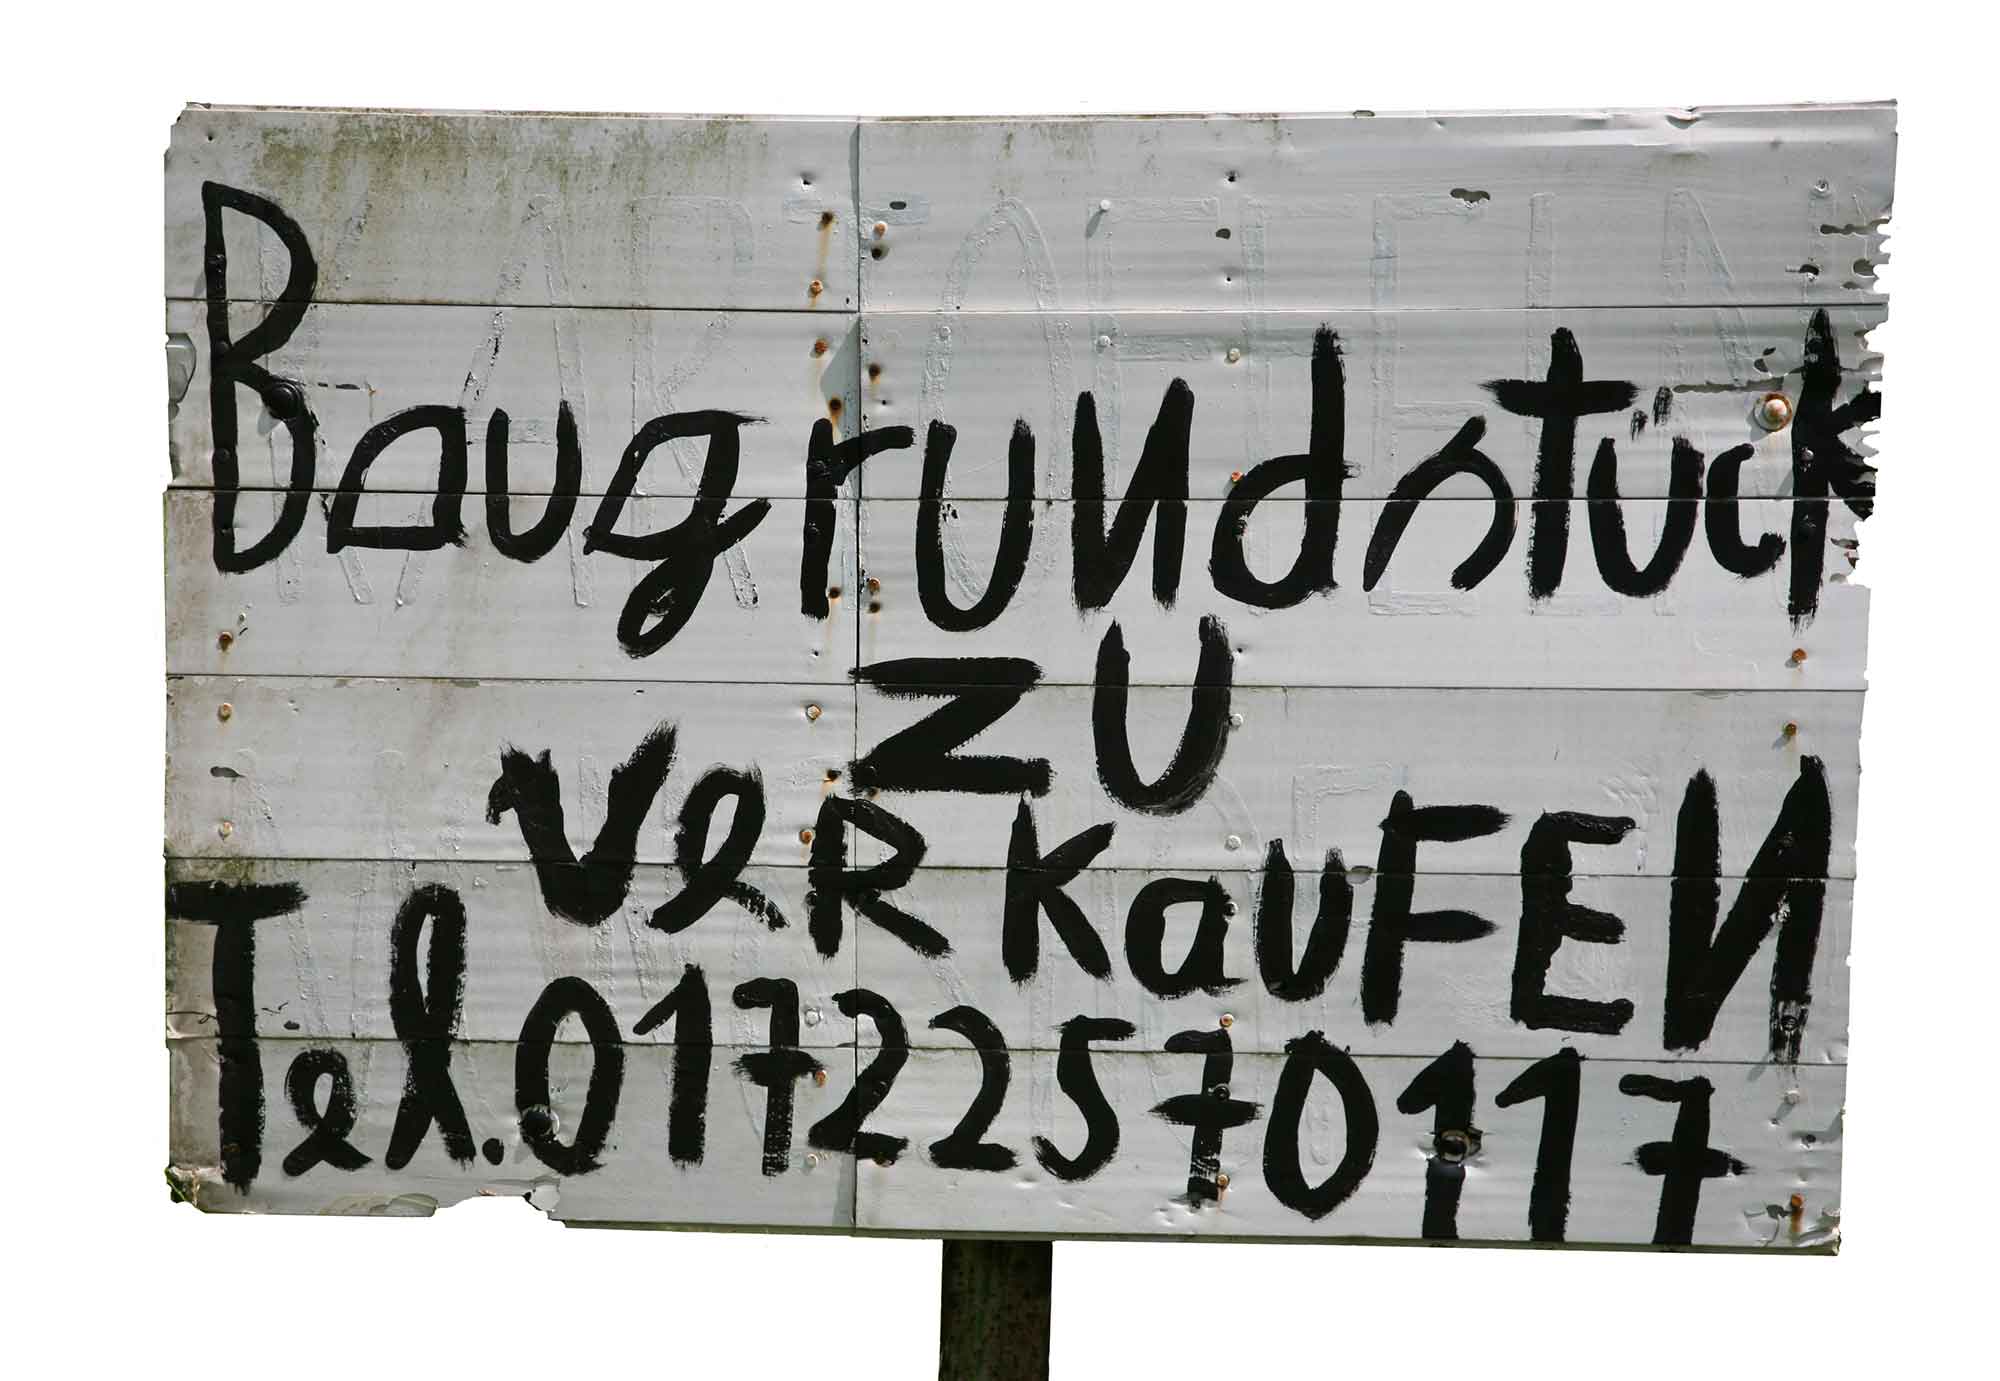 Baugrundstück
ZU
veRkauFEN
Tel.01722570117